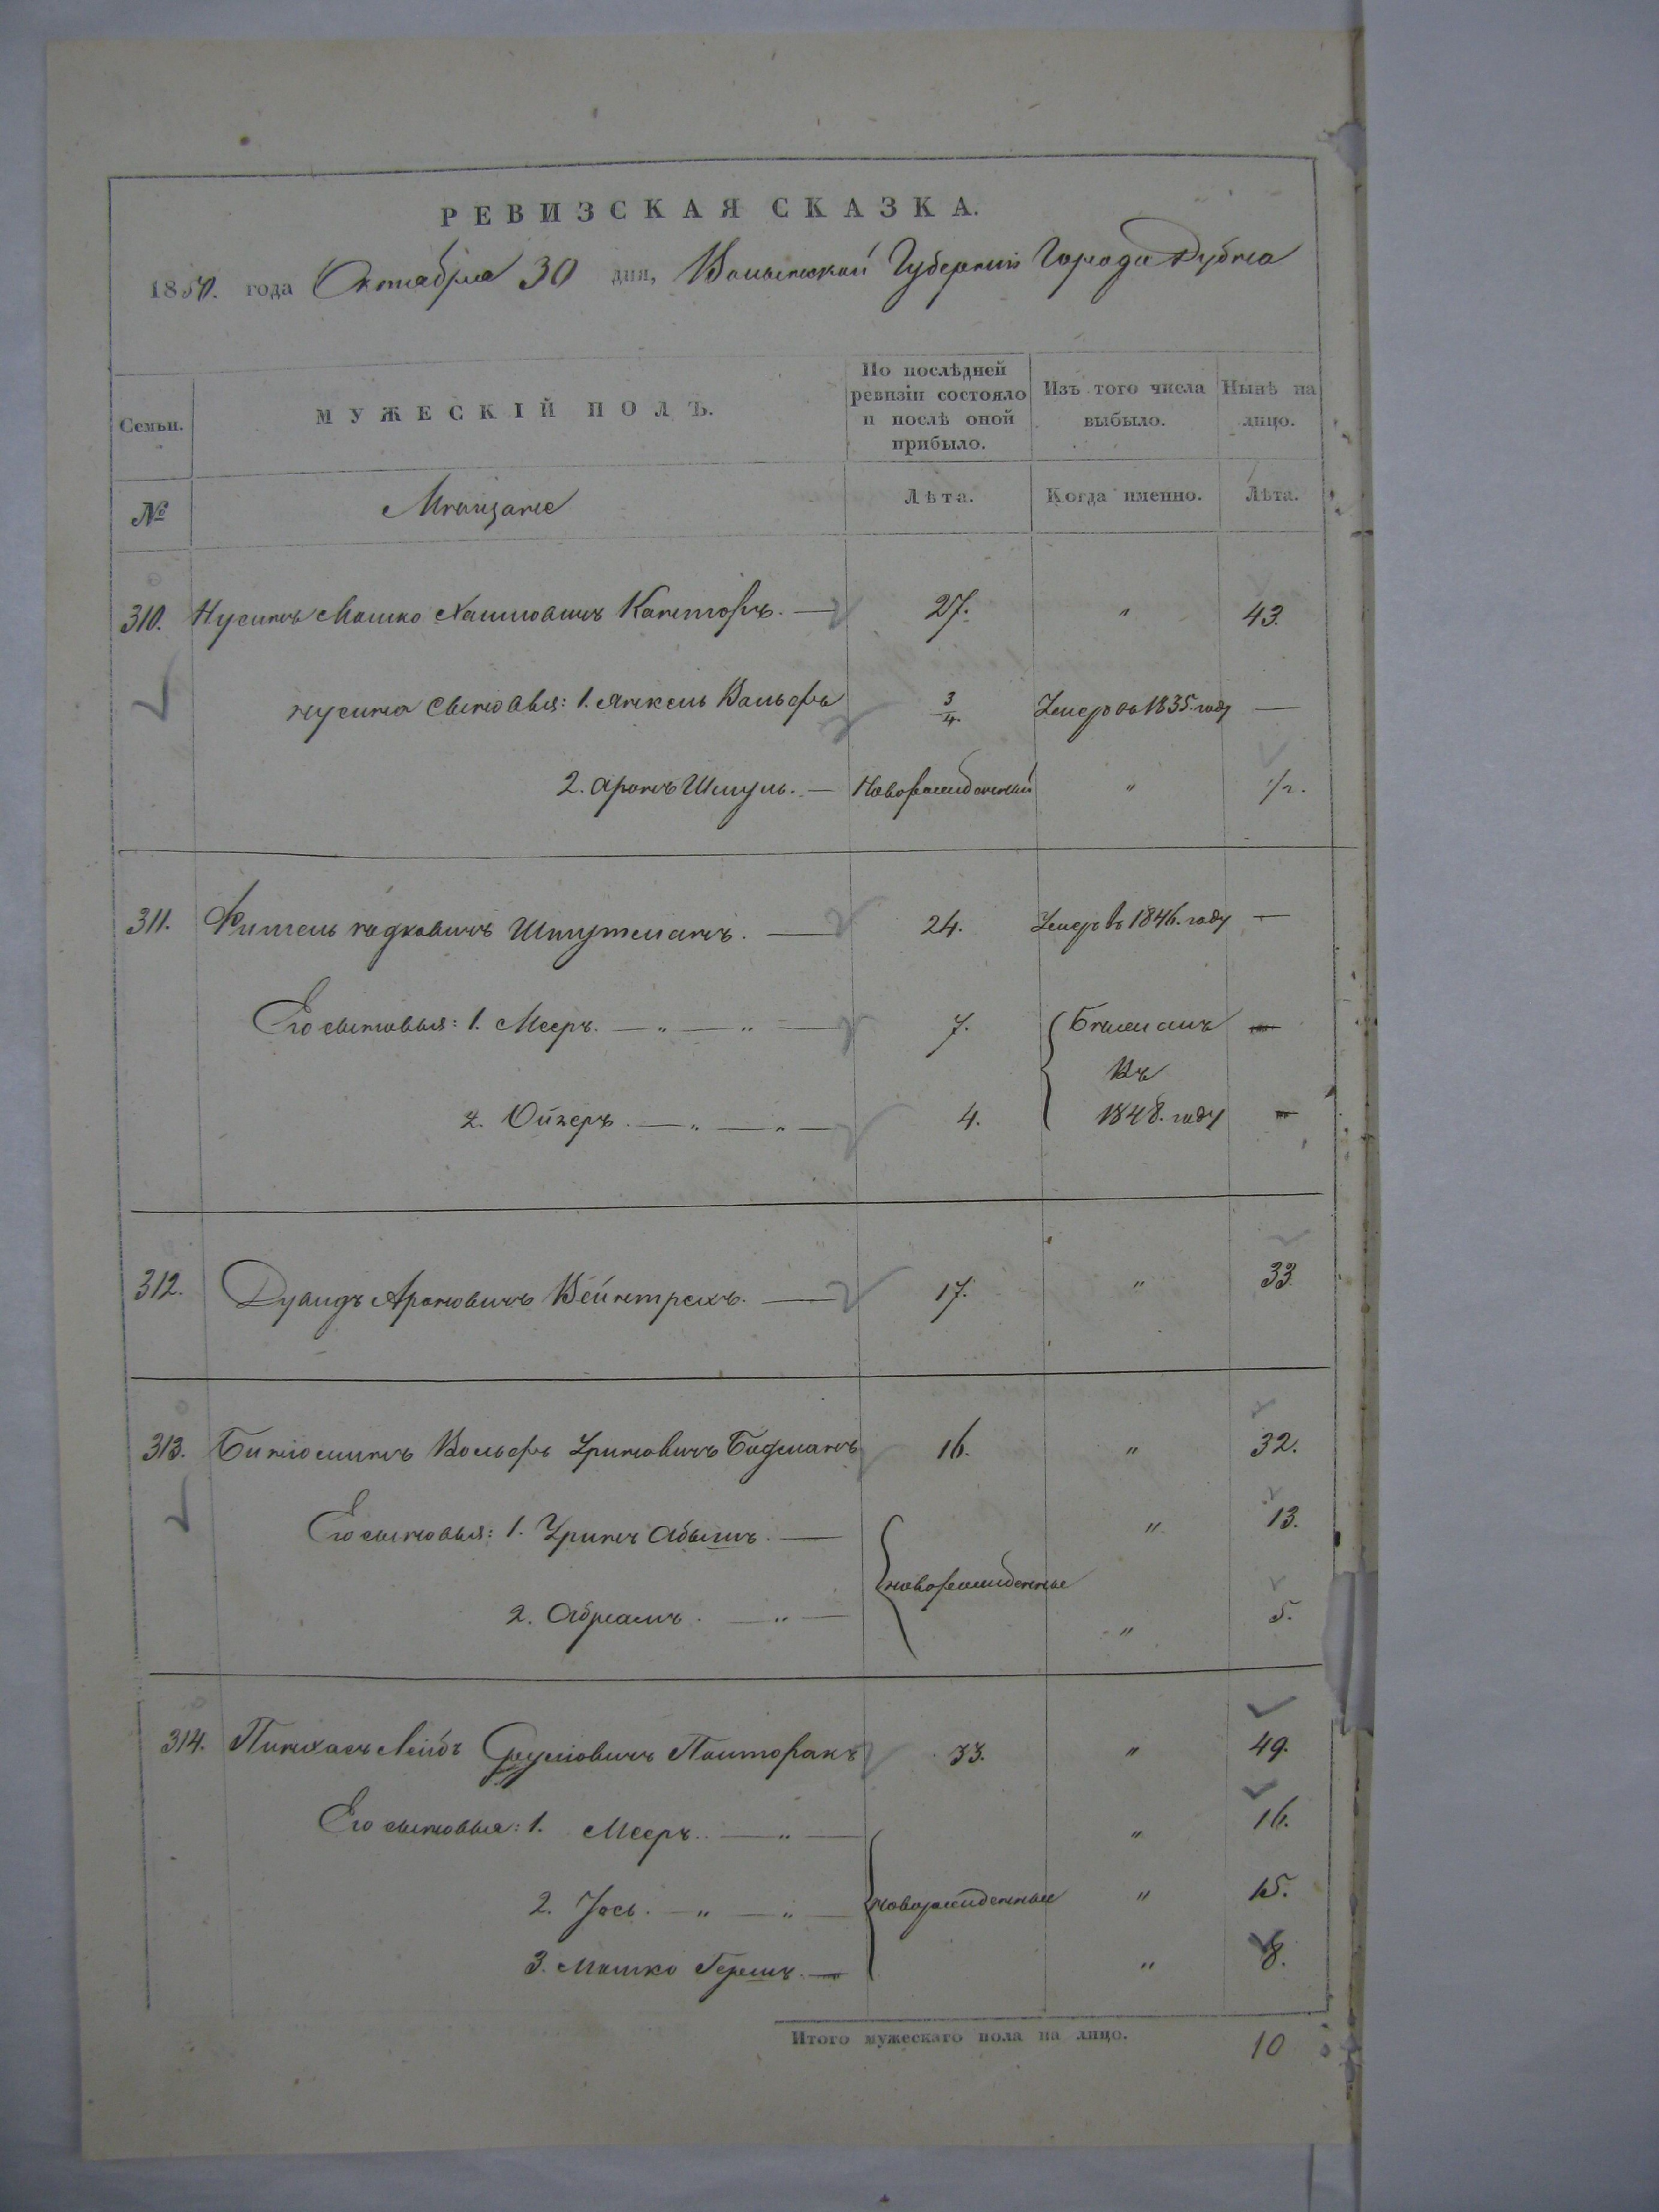 РЕВИЗСКАЯ СКАЗКА.
1850. года Октября 30 дня, Волынской Губернии Города Дубна
Семьи.
МУЖЕСКІЙ ПОЛЪ.
По послѣдней ревизіи состояло и послѣ оной прибыло.
Изъ того числа выбыло.
Нынѣ на лицо.
№
Мещане
Лѣта.
Когда именно.
Лѣта.
310. Нусинъ Мошко Хаимовичъ Канторъ. — 27. " 43.
Нусина сыновья: 1. Янкель Вольфъ 3/4. Умеръ въ 1835. году —
2. Аронъ Шмуль. — Новорожденный " 1/2.
311. Фишель Шмутманъ. — 24. Умеръ въ 1846. году —
Его сыновья: 1. Мееръ. — " — " — 7. Бежалъ —
въ
2. Ойзеръ. — " — " — 4. 1848. году —
312. Дувидъ Ароновичъ Вейнтрехъ. — 17. " 33
313. Биніоминъ Вольфъ Уриновичъ Бидманъ 16. " 32.
Его сыновья: 1. Уринъ Абышъ. — " 13.
новорожденные
2. Абрамъ. — " — " 5.
314. Пинхасъ Лейбъ Сруліовичъ Полторакъ 33. " 49.
Его сыновья: 1. Мееръ. — " — " 16.
2. Іось. — " — " — новорожденные " 15.
3. Мошко Гершъ. — " 8.
Итого мужескаго пола на лицо. 10